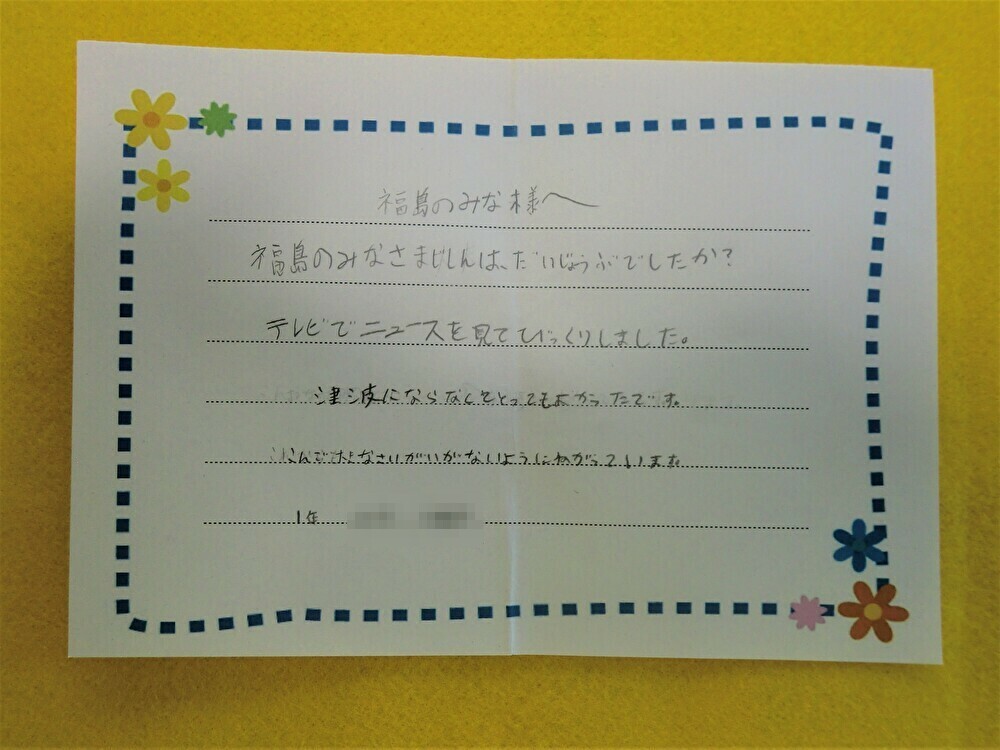 福島のみな様へ
福島のみなさまじしんは、だいじょうぶでしたか?
テレビでニュースを見てびっくりしました。
津波にならなくてとってもよかったです。
さいがいがないようにねがっています
1年